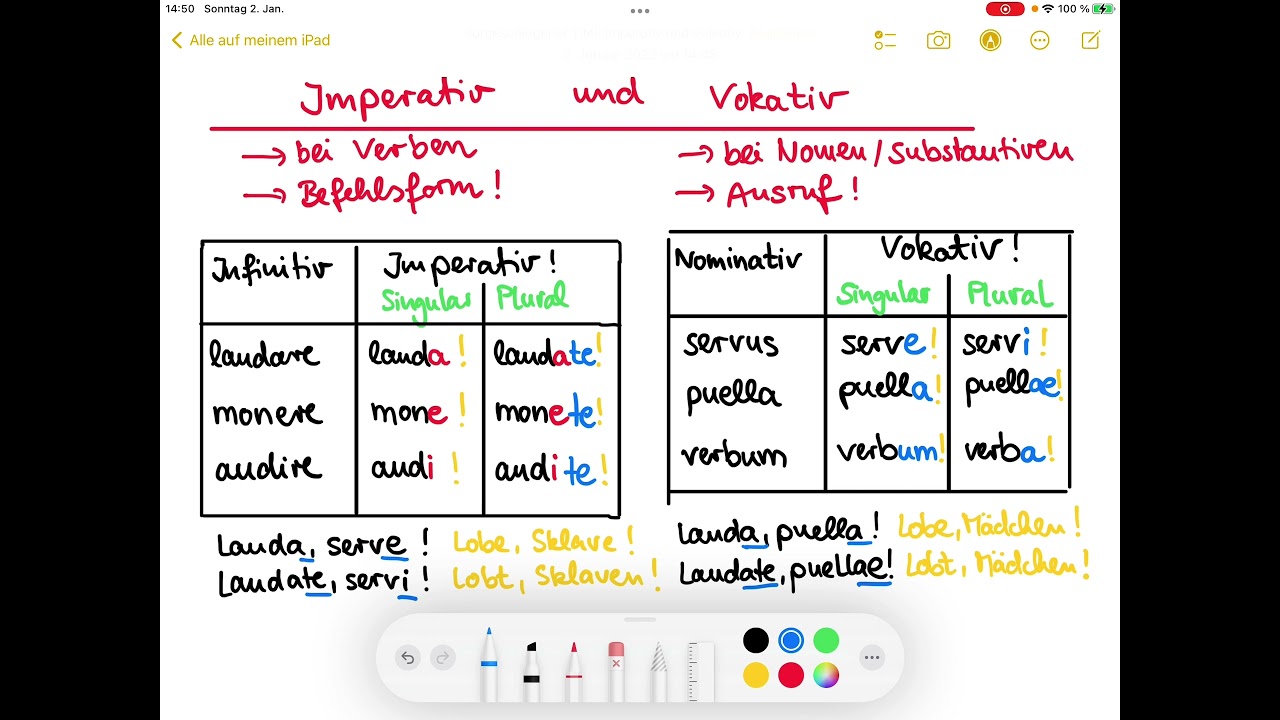 14:50 Sonntag 2. Jan. 100 %
Alle auf meinem iPad
Imperativ und Vokativ
→ bei Verben
→ Befehlsform!
→ bei Nomen/Substantiven
→ Ausruf!
Infinitiv Imperativ!
Singular Plural
laudare lauda! laudate!
monere mone! monete!
audire audi! audite!
Nominativ Vokativ!
Singular Plural
servus serve! servi!
puella puella! puellae!
verbum verbum! verba!
Lauda, serve! Lobe, Sklave!
Laudate, servi! Lobt, Sklaven!
Lauda, puella! Lobe, Mädchen!
Laudate, puellae! Lobt, Mädchen!